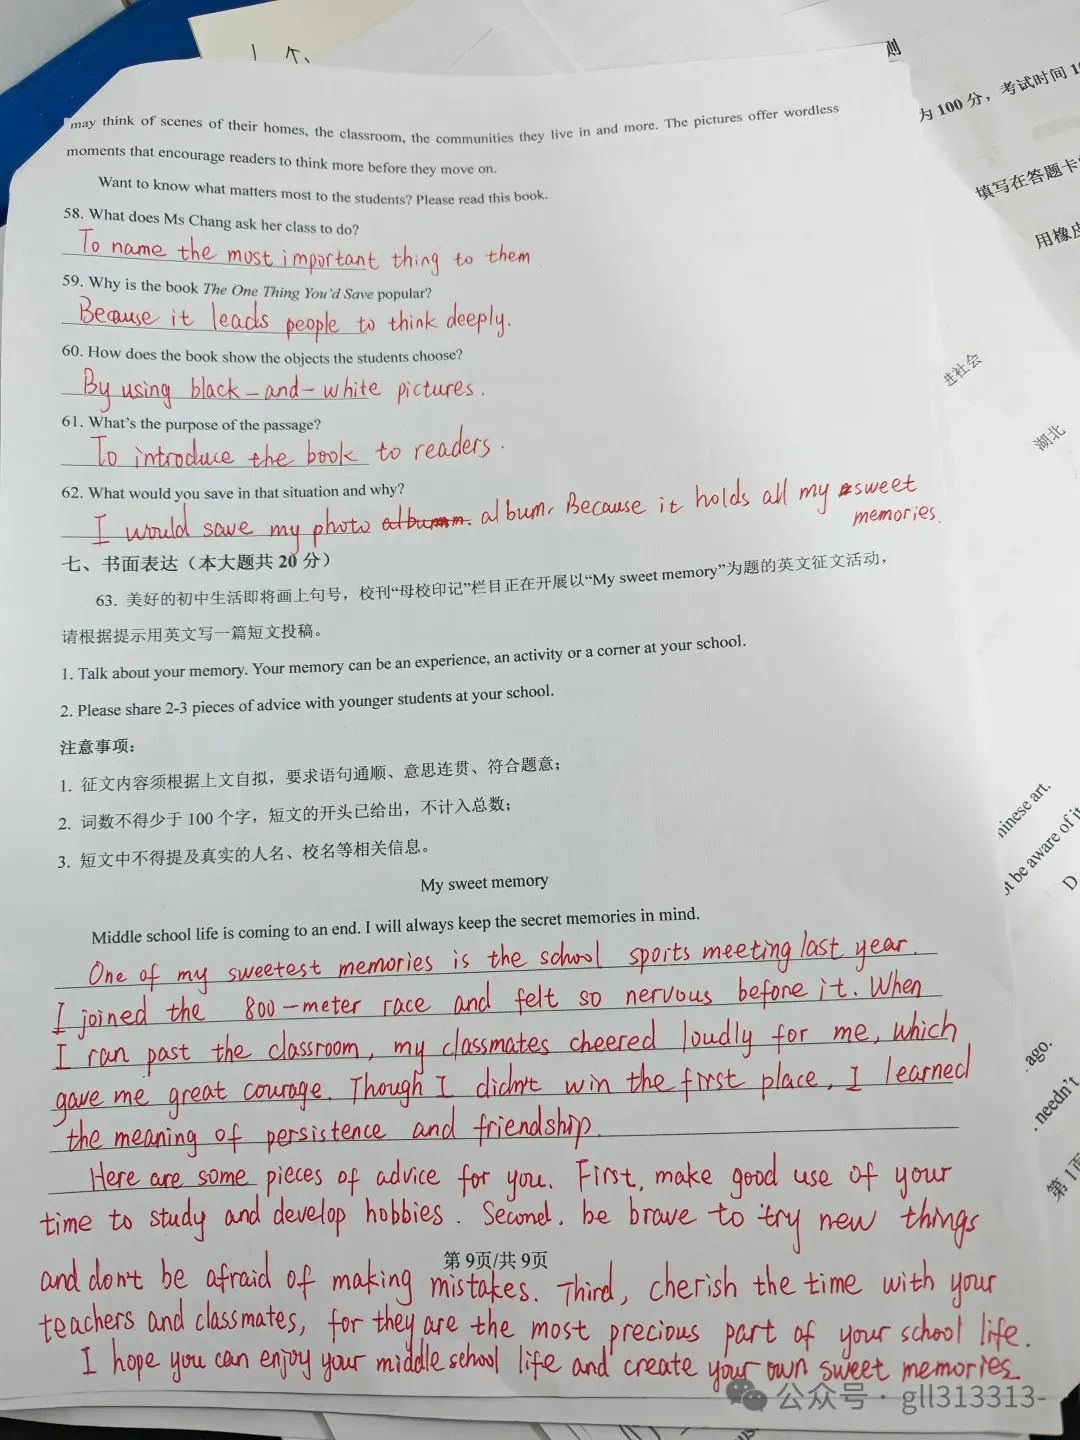 1 个、
则
为 100 分，考试时间 1
填写在答题卡
用橡皮
进社会
湖北
hinese art.
ot be aware of it
D
ago.
. needn't
第 1页
may think of scenes of their homes, the classroom, the communities they live in and more. The pictures offer wordless
moments that encourage readers to think more before they move on.
Want to know what matters most to the students? Please read this book.
58. What does Ms Chang ask her class to do?
To name the most important thing to them
59. Why is the book The One Thing You'd Save popular?
Because it leads people to think deeply.
60. How does the book show the objects the students choose?
By using black-and-white pictures.
61. What's the purpose of the passage?
To introduce the book to readers.
62. What would you save in that situation and why?
I would save my photo album. Because it holds all my sweet
memories.
七、书面表达（本大题共 20 分）
63. 美好的初中生活即将画上句号，校刊“母校印记”栏目正在开展以“My sweet memory”为题的英文征文活动，
请根据提示用英文写一篇短文投稿。
1. Talk about your memory. Your memory can be an experience, an activity or a corner at your school.
2. Please share 2-3 pieces of advice with younger students at your school.
注意事项：
1. 征文内容须根据上文自拟，要求语句通顺、意思连贯、符合题意；
2. 词数不得少于 100 个字，短文的开头已给出，不计入总数；
3. 短文中不得提及真实的人名、校名等相关信息。
My sweet memory
Middle school life is coming to an end. I will always keep the secret memories in mind.
One of my sweetest memories is the school sports meeting last year.
I joined the 800-meter race and felt so nervous before it. When
I ran past the classroom, my classmates cheered loudly for me, which
gave me great courage. Though I didn't win the first place, I learned
the meaning of persistence and friendship.
Here are some pieces of advice for you. First, make good use of your
time to study and develop hobbies. Second, be brave to try new things
第 9页/共 9页
and don't be afraid of making mistakes. Third, cherish the time with your
teachers and classmates, for they are the most precious part of your school life.
I hope you can enjoy your middle school life and create your own sweet memories.
公众号 · gll313313-